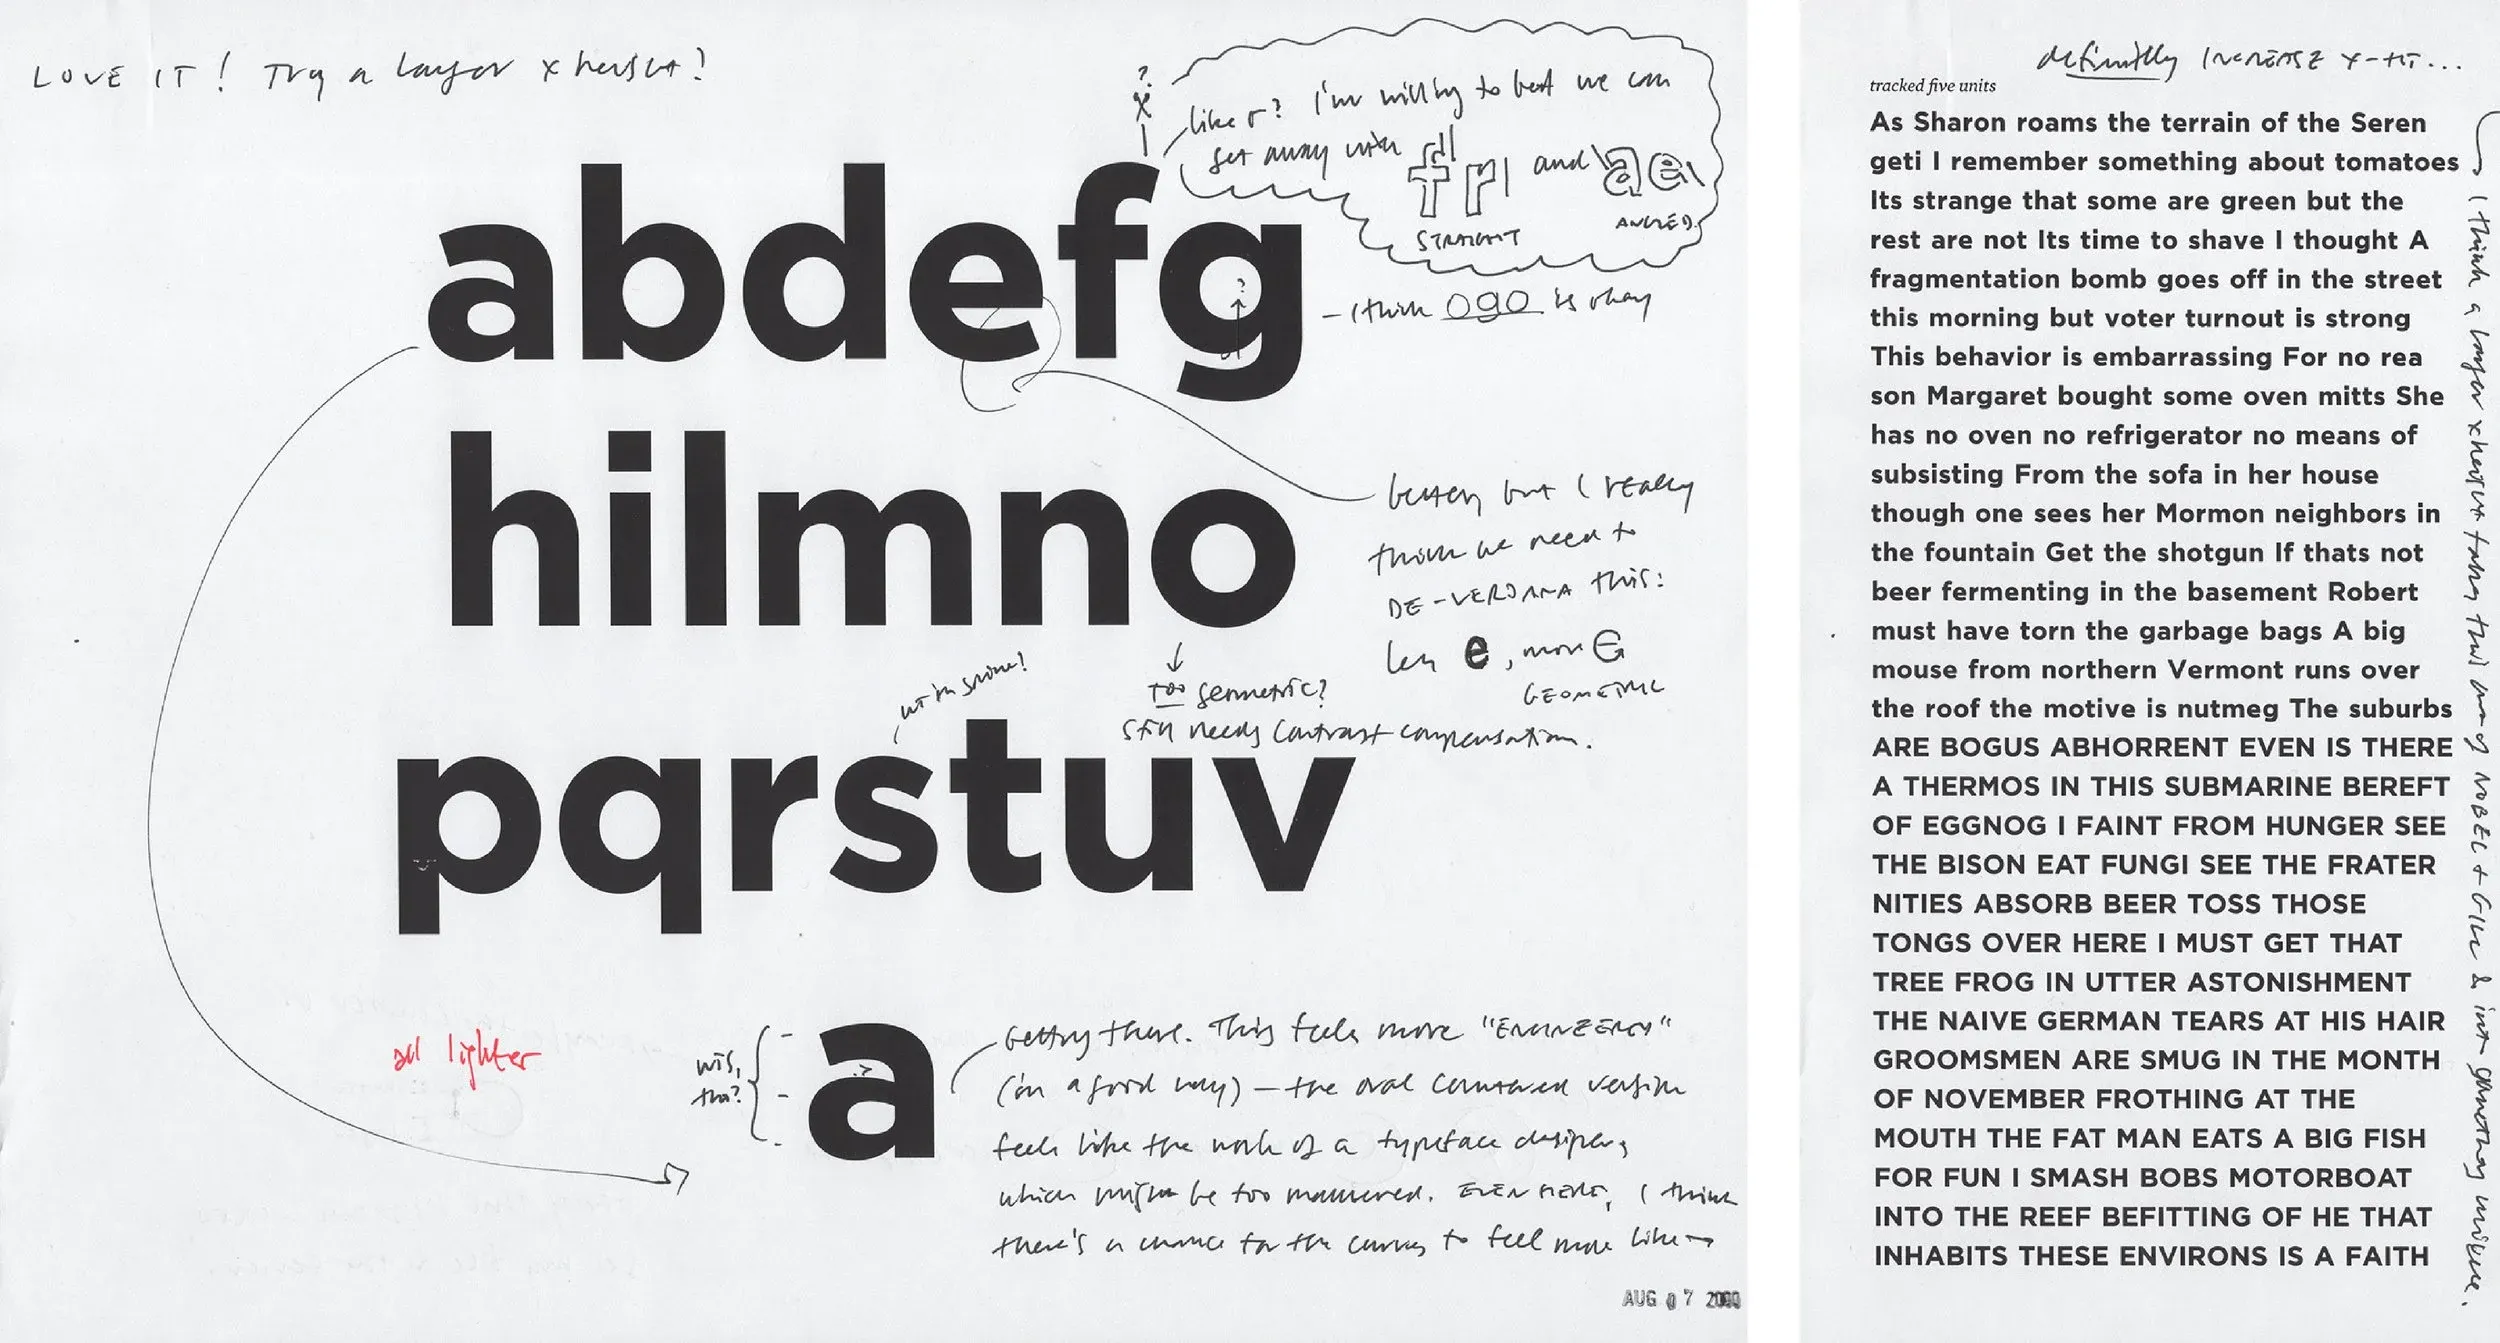 LOVE IT! Try a larger x height?
?
like r? I'm willing to bet we can
get away with fr and ae
STRAIGHT
ANGLED.
abdefg
?
– I think ogo is okay
hilmno
better, but I really
think we need to
DE-VERDANA this:
less e, more e
GEOMETRIC
TOO geometric?
still needs contrast compensation.
pqrstuv
all lighter
a
Getting there. This feels more "ENGINEERED"
(in a good way) — the oval countered version
feels like the work of a typeface designer,
which might be too mannered. EVEN HERE, I think
there's a chance for the curves to feel more like
AUG 07 2000
definitely INCREASE X-HT...
tracked five units
As Sharon roams the terrain of the Seren
geti I remember something about tomatoes
Its strange that some are green but the
rest are not Its time to shave I thought A
fragmentation bomb goes off in the street
this morning but voter turnout is strong
This behavior is embarrassing For no rea
son Margaret bought some oven mitts She
has no oven no refrigerator no means of
subsisting From the sofa in her house
though one sees her Mormon neighbors in
the fountain Get the shotgun If thats not
beer fermenting in the basement Robert
must have torn the garbage bags A big
mouse from northern Vermont runs over
the roof the motive is nutmeg The suburbs
ARE BOGUS ABHORRENT EVEN IS THERE
A THERMOS IN THIS SUBMARINE BEREFT
OF EGGNOG I FAINT FROM HUNGER SEE
THE BISON EAT FUNGI SEE THE FRATER
NITIES ABSORB BEER TOSS THOSE
TONGS OVER HERE I MUST GET THAT
TREE FROG IN UTTER ASTONISHMENT
THE NAIVE GERMAN TEARS AT HIS HAIR
GROOMSMEN ARE SMUG IN THE MONTH
OF NOVEMBER FROTHING AT THE
MOUTH THE FAT MAN EATS A BIG FISH
FOR FUN I SMASH BOBS MOTORBOAT
INTO THE REEF BEFITTING OF HE THAT
INHABITS THESE ENVIRONS IS A FAITH
I think a larger xheight takes this out of NOBEL + GILL & into something unique.